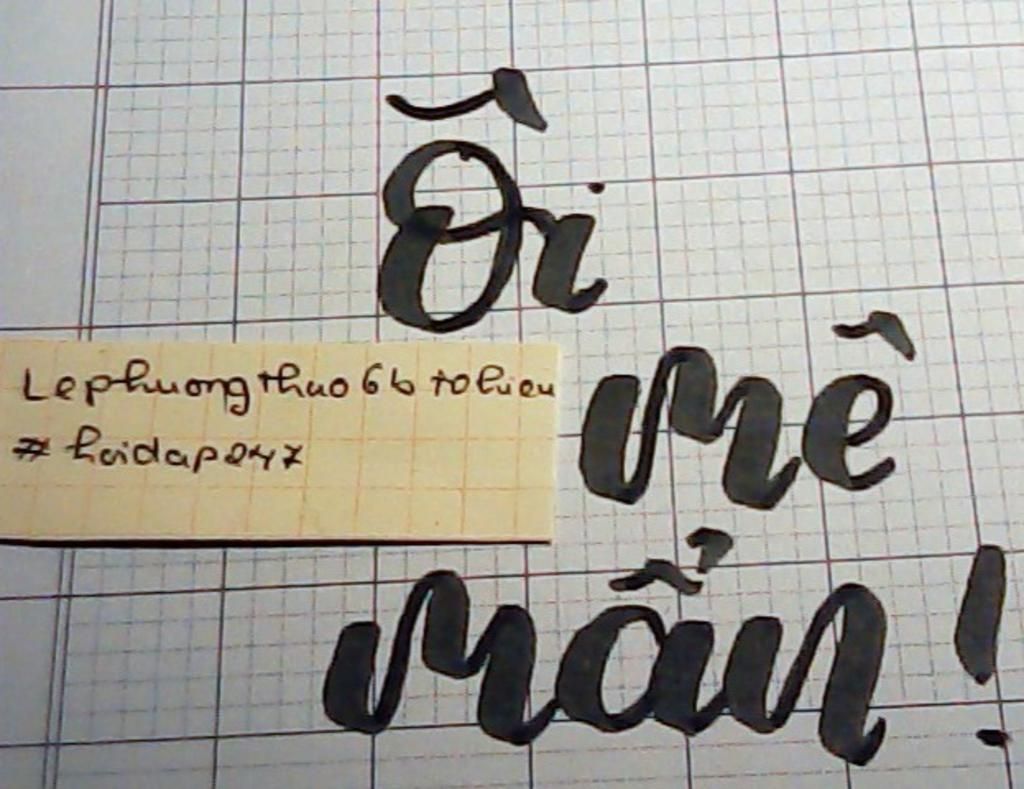 Ôi
mê
mẩn!
Lephuongthao6b tohieu
#hoidap247